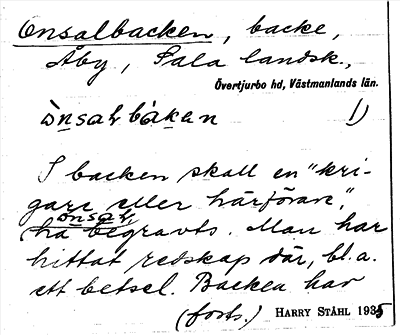 Onsalbacken, backe,
Åby, Sala landsk.,
Övertjurbo hd, Västmanlands län.
ònsaƚbàkan 1)
I backen skall en "kri-
gare eller härförare",
onsaƚ,
ha begravts. Man har
hittat redskap där, bl.a.
ett betsel. Backen har
(forts.) HARRY STÅHL 1935